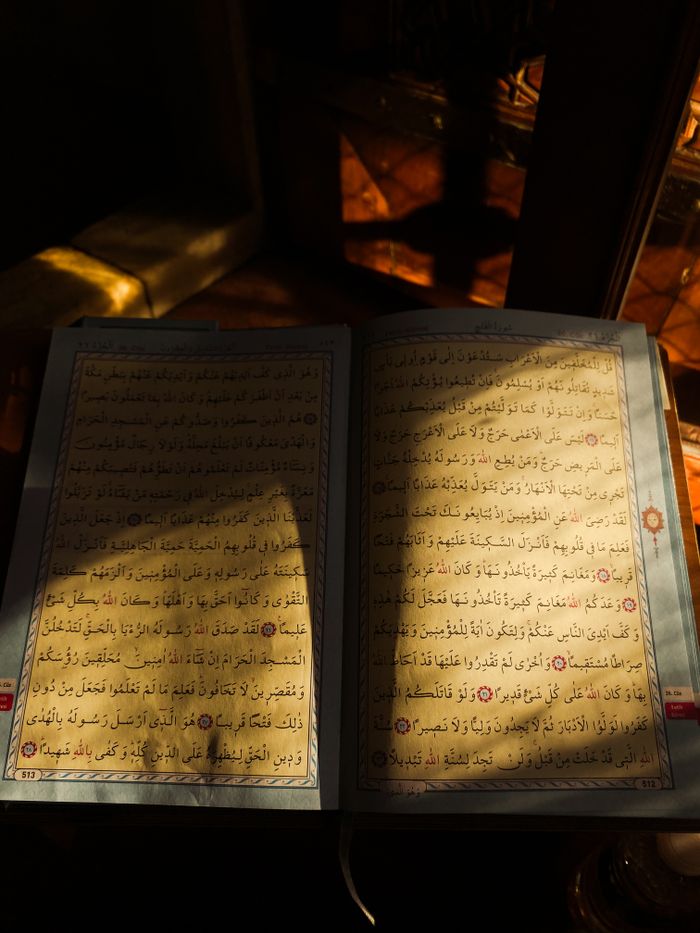 سُورَةُ الْفَتْحِ
قُلْ لِلْمُخَلَّفِينَ مِنَ الْاَعْرَابِ سَتُدْعَوْنَ اِلٰى قَوْمٍ اُو۬لِى بَأْسٍ
شَدِيدٍ تُقَاتِلُونَهُمْ اَوْ يُسْلِمُونَ فَاِنْ تُطِيعُوا يُؤْتِكُمُ اللّٰهُ اَجْرًا
حَسَنًا وَاِنْ تَتَوَلَّوْا كَمَا تَوَلَّيْتُمْ مِنْ قَبْلُ يُعَذِّبْكُمْ عَذَابًا
اَلِيمًا لَيْسَ عَلَى الْاَعْمٰى حَرَجٌ وَلَا عَلَى الْاَعْرَجِ حَرَجٌ وَلَا
عَلَى الْمَرِيضِ حَرَجٌ وَمَنْ يُطِعِ اللّٰهَ وَرَسُولَهُ يُدْخِلْهُ جَنَّاتٍ
تَجْرِى مِنْ تَحْتِهَا الْاَنْهَارُ وَمَنْ يَتَوَلَّ يُعَذِّبْهُ عَذَابًا اَلِيمًا
لَقَدْ رَضِىَ اللّٰهُ عَنِ الْمُؤْمِنِينَ اِذْ يُبَايِعُونَكَ تَحْتَ الشَّجَرَةِ
فَعَلِمَ مَا فِى قُلُوبِهِمْ فَاَنْزَلَ السَّكِينَةَ عَلَيْهِمْ وَاَثَابَهُمْ فَتْحًا
قَرِيبًا وَمَغَانِمَ كَثِيرَةً يَأْخُذُونَهَا وَكَانَ اللّٰهُ عَزِيزًا حَكِيمًا
وَعَدَكُمُ اللّٰهُ مَغَانِمَ كَثِيرَةً تَأْخُذُونَهَا فَعَجَّلَ لَكُمْ هٰذِهِ
وَكَفَّ اَيْدِىَ النَّاسِ عَنْكُمْ وَلِتَكُونَ اٰيَةً لِلْمُؤْمِنِينَ وَيَهْدِيَكُمْ
صِرَاطًا مُسْتَقِيمًا وَاُخْرٰى لَمْ تَقْدِرُوا عَلَيْهَا قَدْ اَحَاطَ اللّٰهُ
بِهَا وَكَانَ اللّٰهُ عَلٰى كُلِّ شَىْءٍ قَدِيرًا وَلَوْ قَاتَلَكُمُ الَّذِينَ
كَفَرُوا لَوَلَّوُا الْاَدْبَارَ ثُمَّ لَا يَجِدُونَ وَلِيًّا وَلَا نَصِيرًا سُنَّةَ
اللّٰهِ الَّتِى قَدْ خَلَتْ مِنْ قَبْلُ وَلَنْ تَجِدَ لِسُنَّةِ اللّٰهِ تَبْدِيلًا
512
وَهُوَ الَّذِى
26. Cüz
Fetih
وَهُوَ الَّذِى كَفَّ اَيْدِيَهُمْ عَنْكُمْ وَاَيْدِيَكُمْ عَنْهُمْ بِبَطْنِ مَكَّةَ
مِنْ بَعْدِ اَنْ اَظْفَرَكُمْ عَلَيْهِمْ وَكَانَ اللّٰهُ بِمَا تَعْمَلُونَ بَصِيرًا
هُمُ الَّذِينَ كَفَرُوا وَصَدُّوكُمْ عَنِ الْمَسْجِدِ الْحَرَامِ
وَالْهَدْىَ مَعْكُوفًا اَنْ يَبْلُغَ مَحِلَّهُ وَلَوْلَا رِجَالٌ مُؤْمِنُونَ
وَنِسَاءٌ مُؤْمِنَاتٌ لَمْ تَعْلَمُوهُمْ اَنْ تَطَؤُ۫هُمْ فَتُصِيبَكُمْ مِنْهُمْ
مَعَرَّةٌ بِغَيْرِ عِلْمٍ لِيُدْخِلَ اللّٰهُ فِى رَحْمَتِهِ مَنْ يَشَاءُ لَوْ تَزَيَّلُوا
لَعَذَّبْنَا الَّذِينَ كَفَرُوا مِنْهُمْ عَذَابًا اَلِيمًا اِذْ جَعَلَ الَّذِينَ
كَفَرُوا فِى قُلُوبِهِمُ الْحَمِيَّةَ حَمِيَّةَ الْجَاهِلِيَّةِ فَاَنْزَلَ اللّٰهُ
سَكِينَتَهُ عَلٰى رَسُولِهِ وَعَلَى الْمُؤْمِنِينَ وَاَلْزَمَهُمْ كَلِمَةَ
التَّقْوٰى وَكَانُوا اَحَقَّ بِهَا وَاَهْلَهَا وَكَانَ اللّٰهُ بِكُلِّ شَىْءٍ
عَلِيمًا لَقَدْ صَدَقَ اللّٰهُ رَسُولَهُ الرُّءْيَا بِالْحَقِّ لَتَدْخُلُنَّ
الْمَسْجِدَ الْحَرَامَ اِنْ شَاءَ اللّٰهُ اٰمِنِينَ مُحَلِّقِينَ رُؤُ۫سَكُمْ
وَمُقَصِّرِينَ لَا تَخَافُونَ فَعَلِمَ مَا لَمْ تَعْلَمُوا فَجَعَلَ مِنْ دُونِ
ذٰلِكَ فَتْحًا قَرِيبًا هُوَ الَّذِى اَرْسَلَ رَسُولَهُ بِالْهُدٰى
وَدِينِ الْحَقِّ لِيُظْهِرَهُ عَلَى الدِّينِ كُلِّهِ وَكَفٰى بِاللّٰهِ شَهِيدًا
513